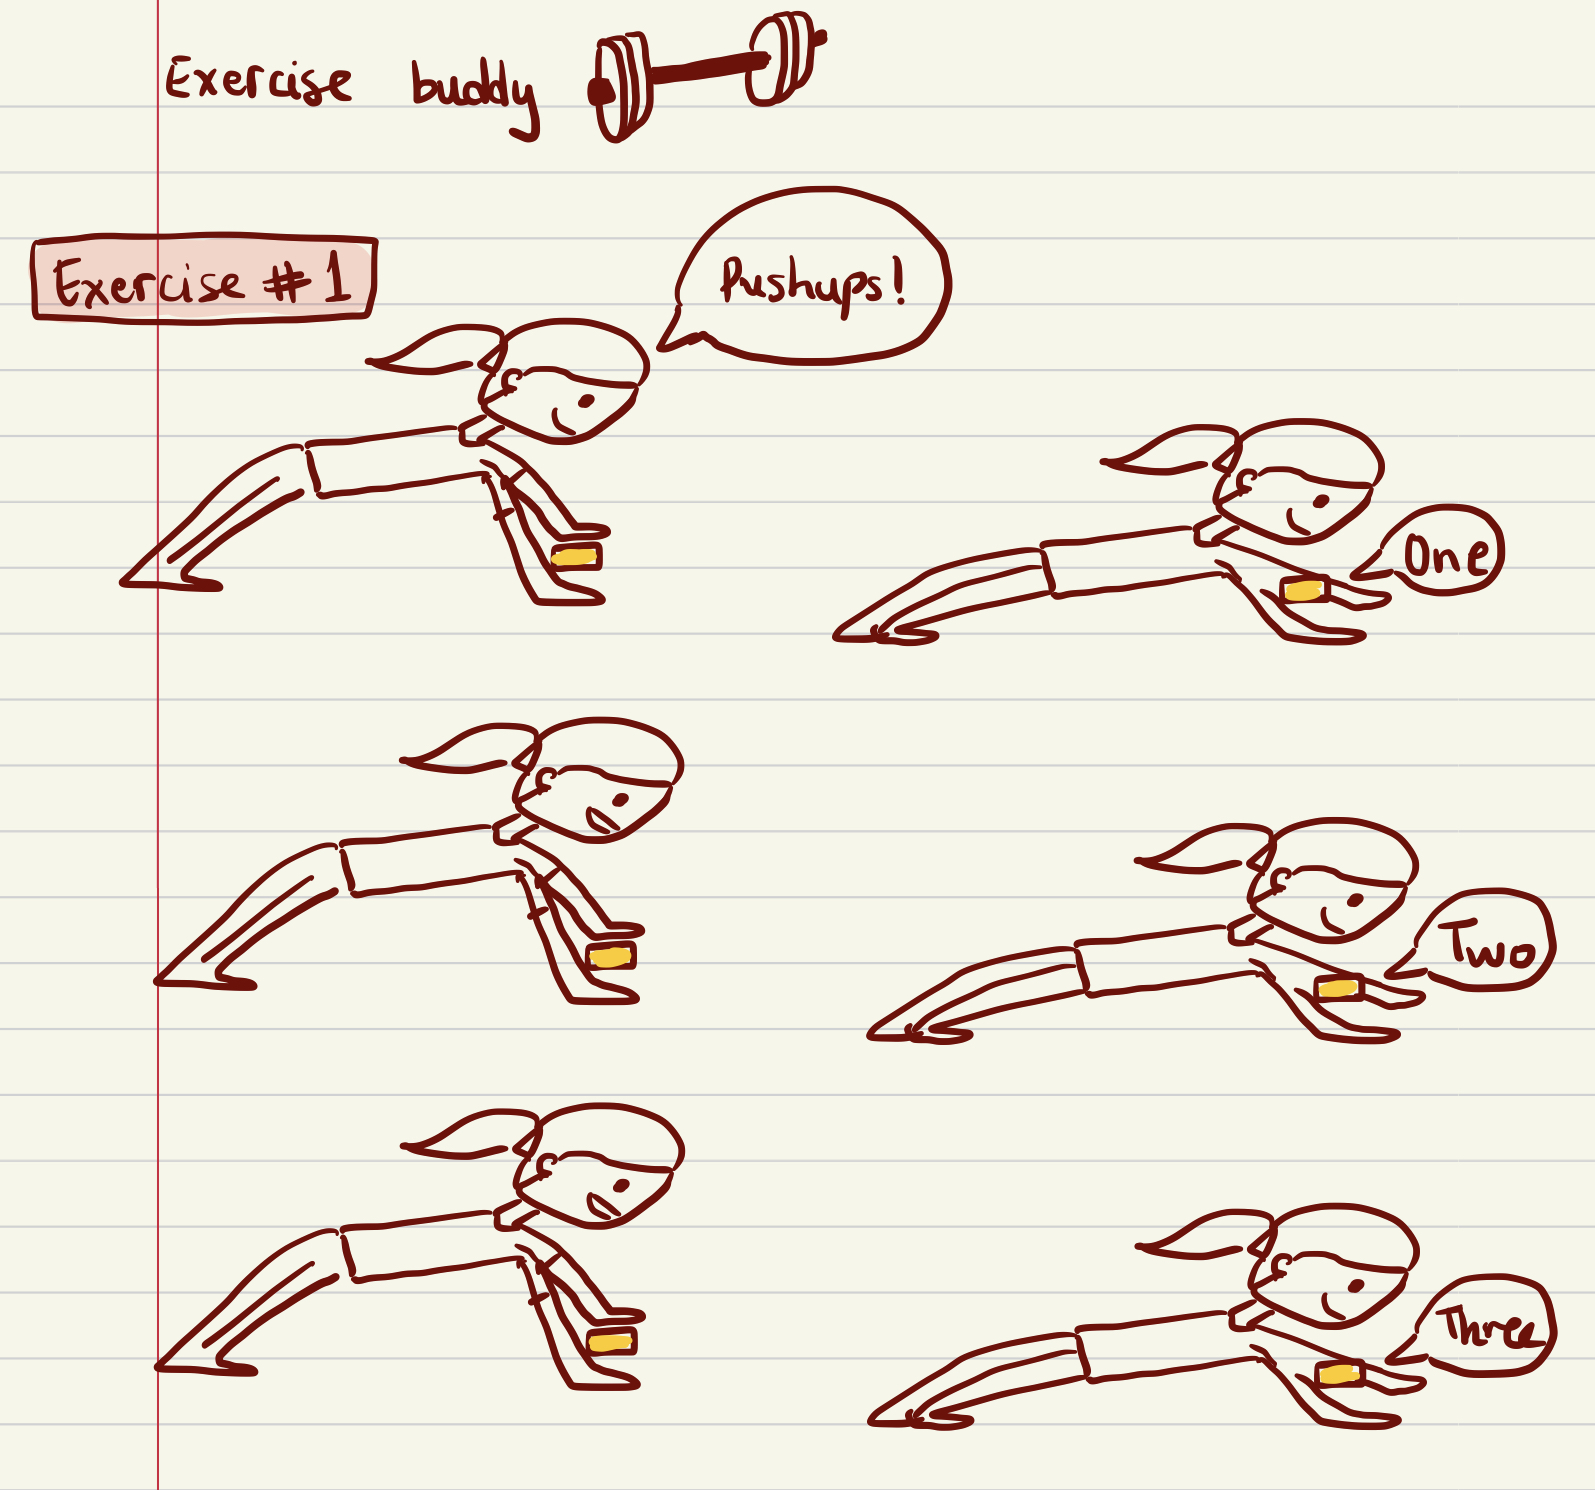 Exercise buddy
Exercise #1
Pushups!
One
Two
Three